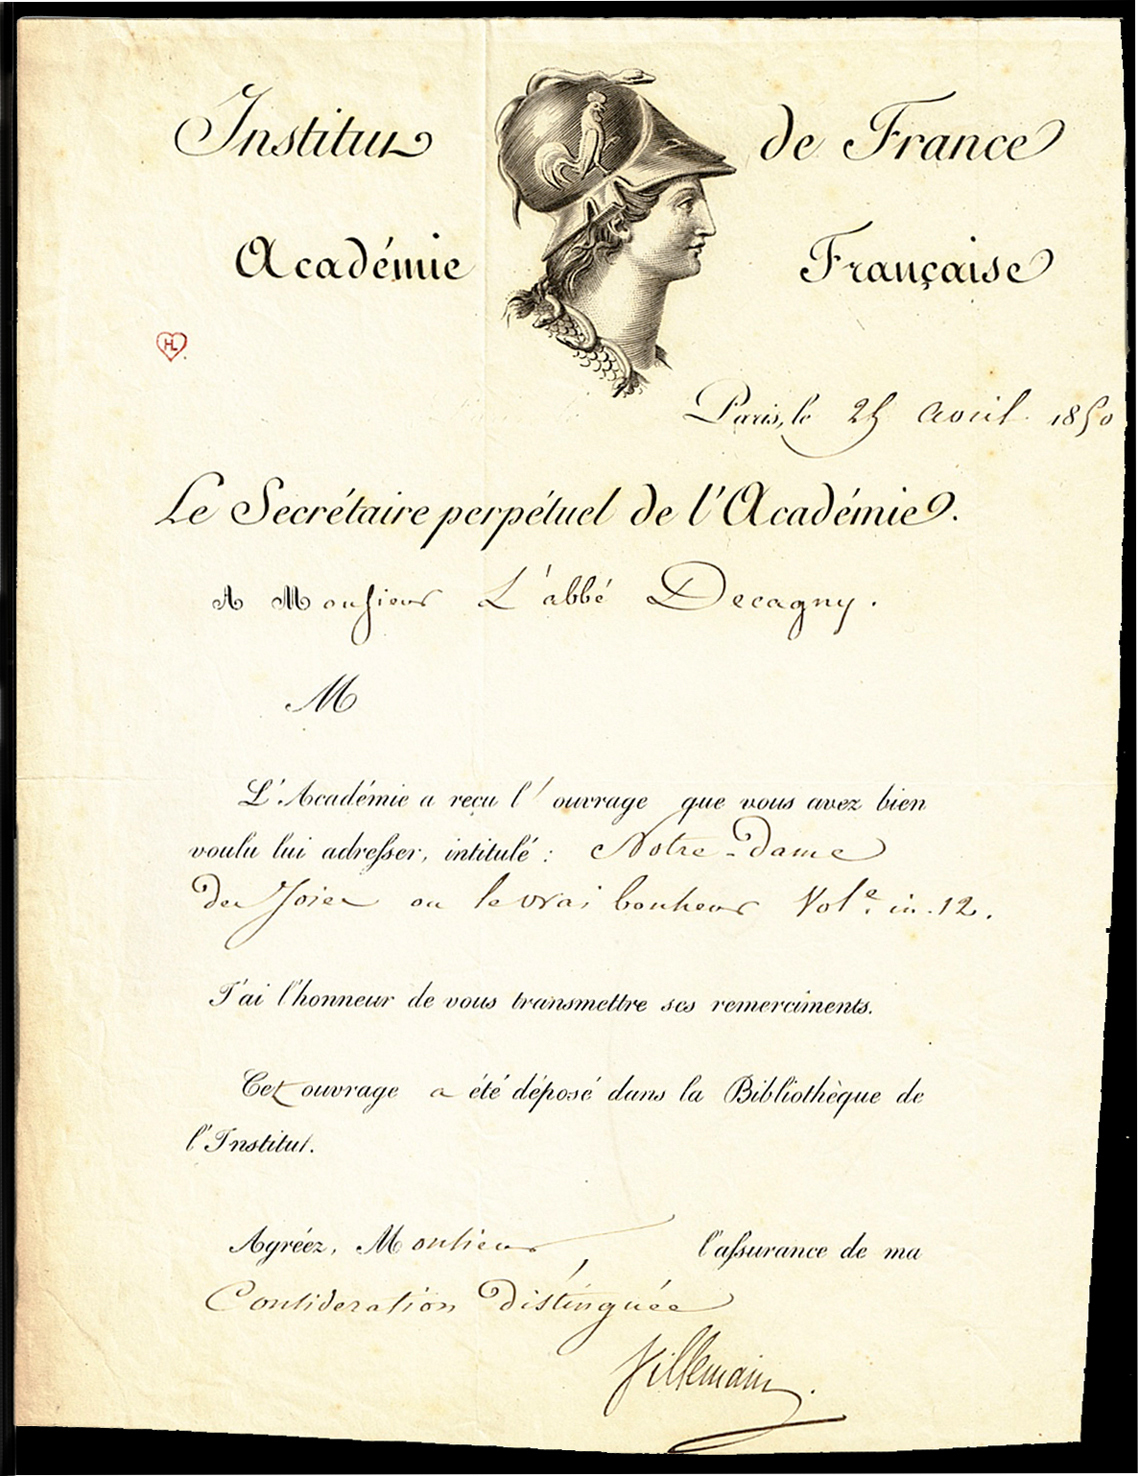 Institut de France
Académie Française
HL
Paris, le 25 avril 1850
Le Secrétaire perpétuel de l'Académie.
A Monsieur L'abbé Decagny.
M
L'Académie a reçu l' ouvrage que vous avez bien
voulu lui adresser, intitulé : Notre-Dame
des Joies ou le vrai bonheur Vol.e in-12.
J'ai l'honneur de vous transmettre ses remerciments.
Cet ouvrage a été déposé dans la Bibliothèque de
l'Institut.
Agréez, Monsieur, l'assurance de ma
Considération distinguée
Villemain.